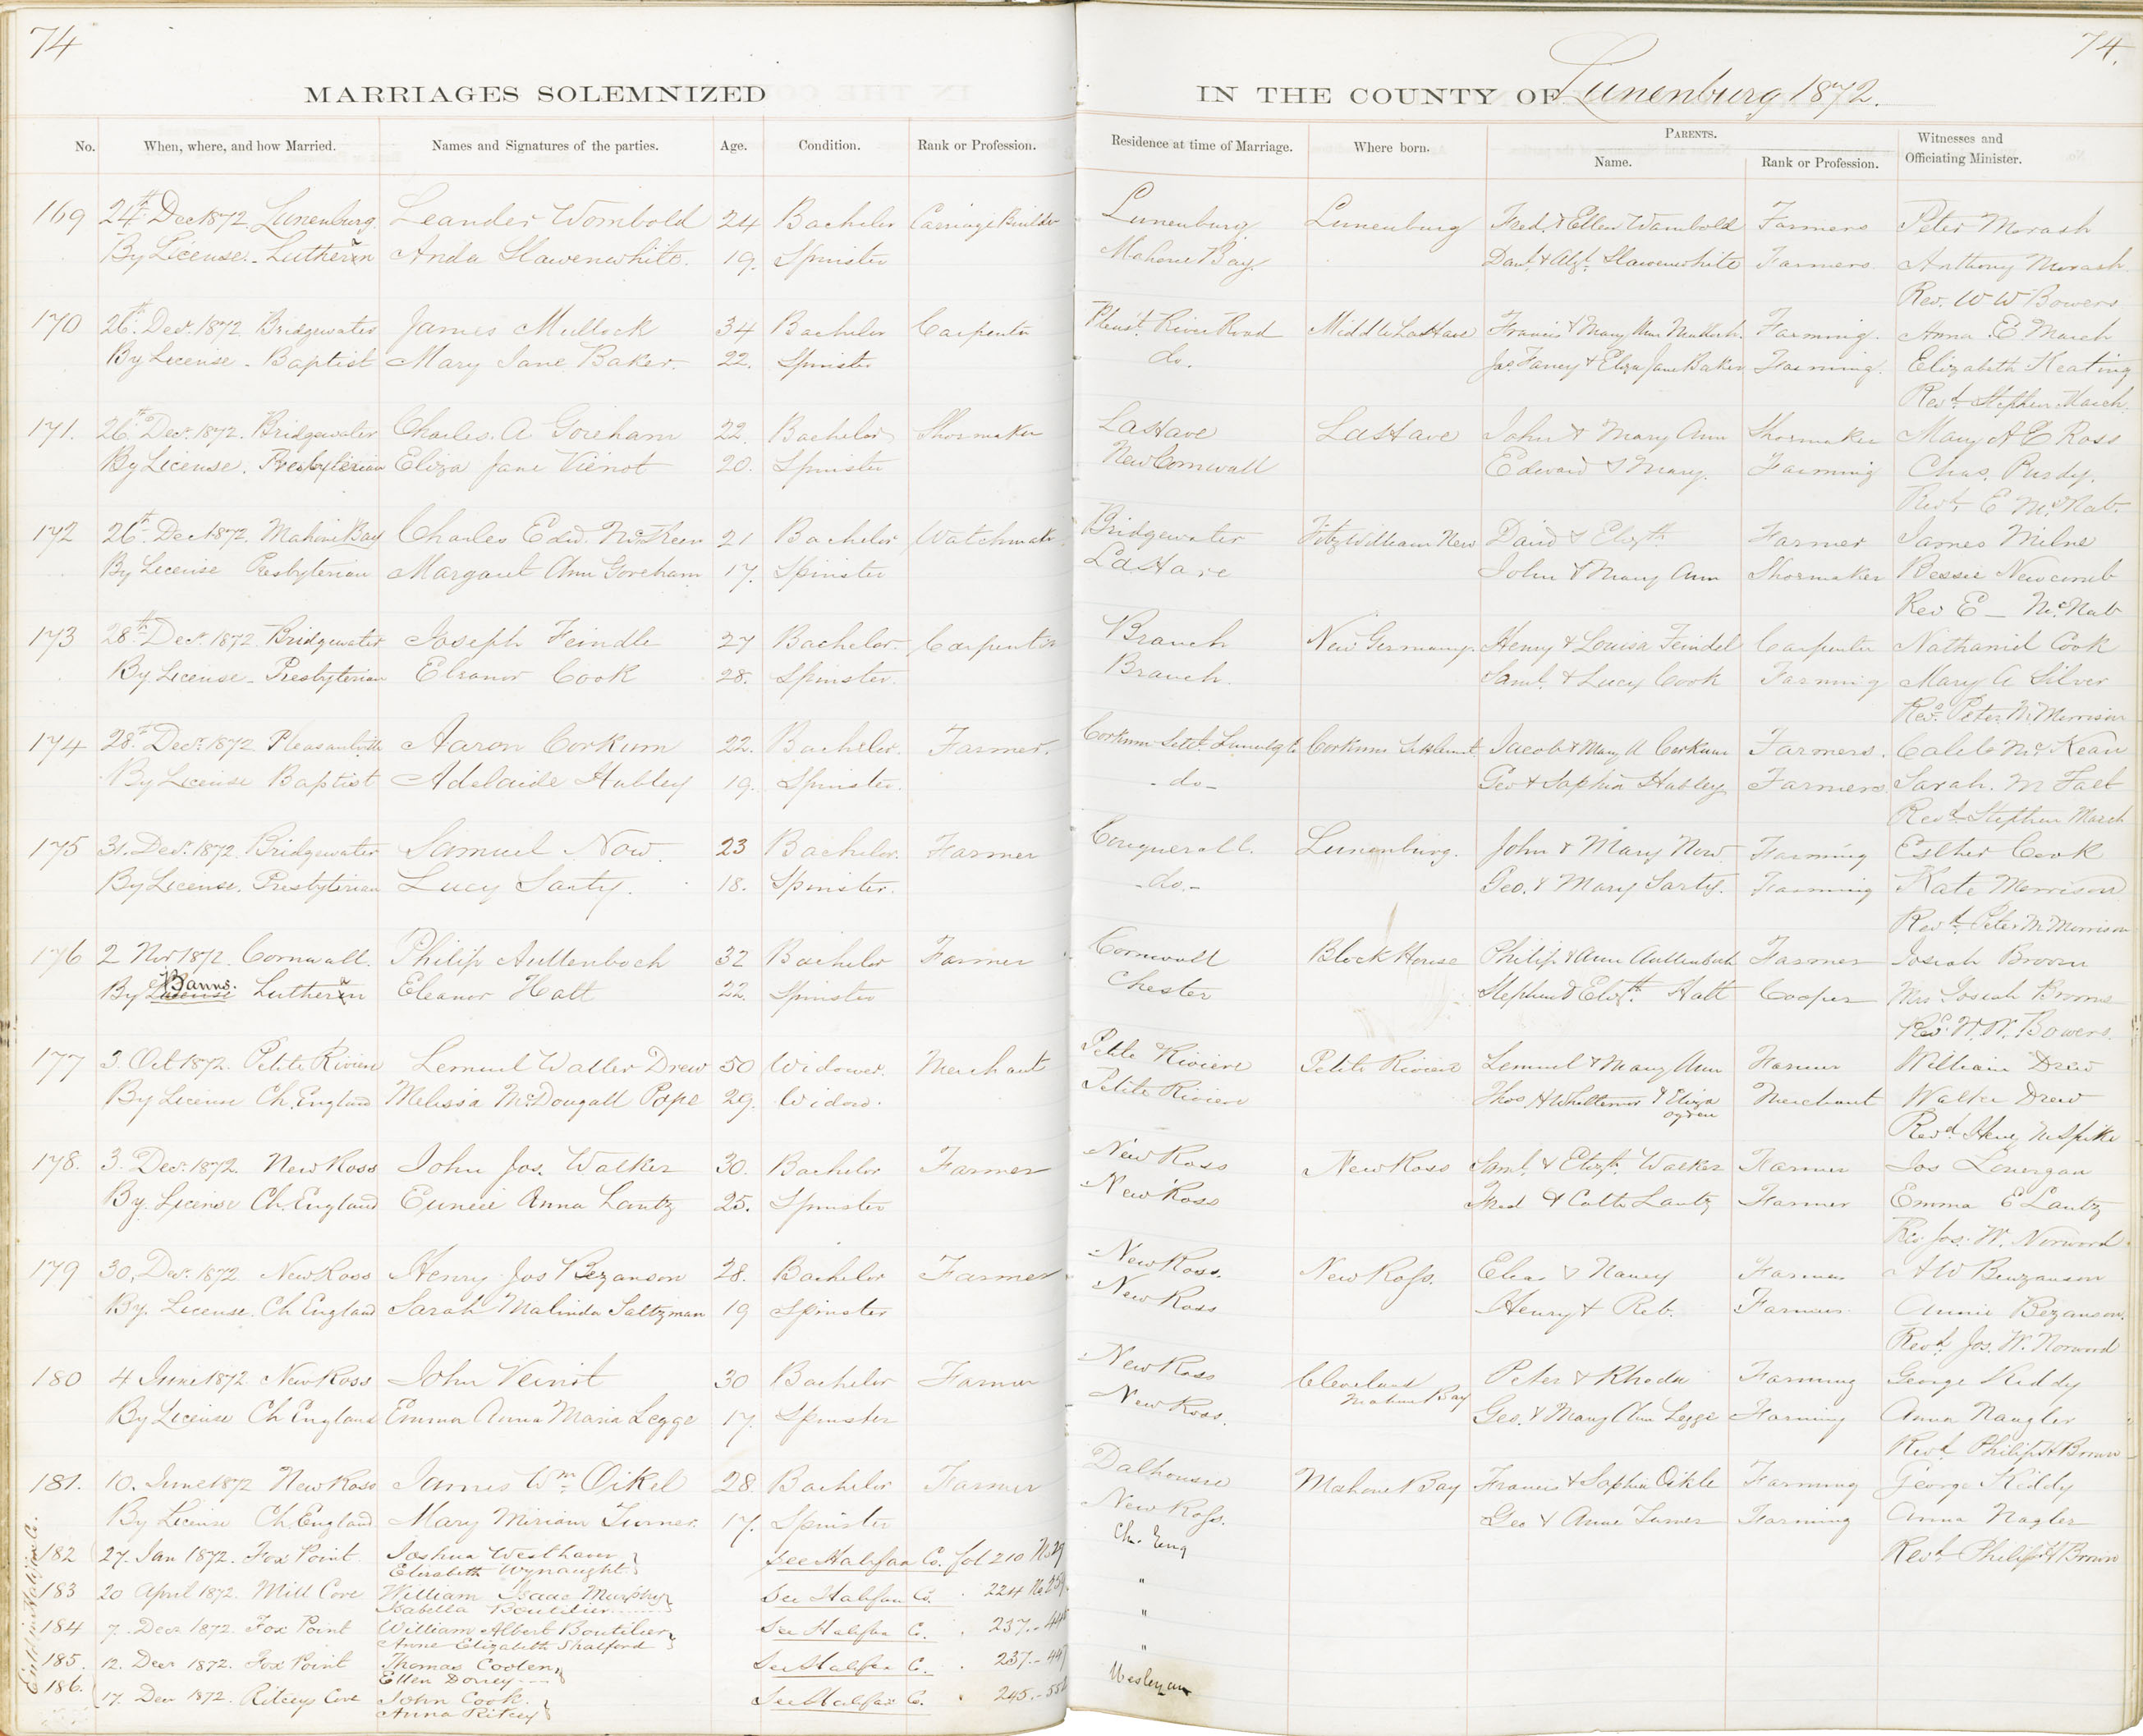 74
74.
MARRIAGES SOLEMNIZED
IN THE COUNTY OF Lunenburg 1872.
No. When, where, and how Married. Names and Signatures of the parties. Age. Condition. Rank or Profession. Residence at time of Marriage. Where born. PARENTS. Name. Rank or Profession. Witnesses and Officiating Minister.
169 24th Dec 1872. Lunenburg. Leander Wombold 24 Bachelor Carriage Builder Lunenburg Lunenburg Fred. & Ellen Wambold Farmers Peter Morash
By License. Lutheran Anda Slawenwhite. 19. Spinster Mahone Bay. Slawenwhite Farmers. Anthony Morash
Rev. W W Bowers
170 26th Decr. 1872 Bridgewater James Mullock 34 Bachelor Carpenter Pleast. River Road Middle LaHave Francis & Mary Ann Farming. Anna E March
By License. Baptist Mary Jane Baker. 22. Spinster do. Eliza Jane Baker Farming. Elizabeth Keating
Revd. Stephen March.
171. 26th Decr. 1872. Bridgewater Charles. A Goreham 22. Bachelor Shoemaker LaHave LaHave John & Mary Ann Shoemaker Mary A E Ross
By License. Presbyterian Eliza Jane Vienot 20. Spinster New Cornwall Edward & Mary. Farming Chas. Purdy.
Revd. E McNab.
172 26th Dec 1872. Mahone Bay Charles Edw. McKeen 21 Bachelor Watchmaker Bridgewater Fitzwilliam New David & Elizth. Farmer James Milne
By License Presbyterian Margaret Ann Goreham 17. Spinster LaHave John & Mary Ann Shoemaker Bessie Newcomb
Rev E - McNab
173 28th Decr. 1872. Bridgewater Joseph Feindle 27 Bachelor. Carpenter Branch New Germany. Henry & Louisa Feindel Carpenter Nathaniel Cook
By License - Presbyterian Eleanor Cook 28. Spinster. Branch. Saml. & Lucy Cook Farming Mary A Silver
Revd. Peter M. Morrison
174 28th Decr. 1872 Pleasantville Aaron Corkum 22. Bachelor. Farmer. Corkum Settlt. Corkums Settlemt. Jacob & Mary A Corkum Farmers. Caleb McKean
By License Baptist Adelaide Hubley 19. Spinster. -do- Geo & Sophia Hubley Farmers. Sarah. M
Revd. Stephen March
175 31. Decr. 1872. Bridgewater Samuel Now. 23 Bachelor. Farmer Conquerall. Lunenburg. John & Mary Now Farming Esther Cook
By License. Presbyterian Lucy Sarty. 18. Spinster. -do.- Geo. & Mary Sarty. Farming Kate Morrison
Revd. Peter M Morrison
176 2 Nov 1872. Cornwall. Philip Aullenboch 32 Bachelor Farmer Cornwall Block House Philip & Ann Aullenbach Farmer Josiah Broom
By License Banns. Lutheran Eleanor Hatt 22. Spinster Chester Stephen & Elizth. Hatt Cooper Mrs Josiah Broom
Revd. W. W. Bowers.
177 3. Oct 1872. Petite Riviere Lemuel Walter Drew 50 Widower. Merchant Petite Riviere Petite Riviere Lemuel & Mary Ann Farmer William Drew
By License Ch. England Melissa McDougall Pope 29. Widow. Petite Riviere Thos & Eliza Ogden Merchant Walter Drew
Revd. Henry M Spike
178. 3. Decr. 1872. New Ross John Jos. Walker 30. Bachelor Farmer New Ross New Ross Saml. & Elizth. Walker Farmer Jos Lonergan
By. License Ch. England Eunice Anna Lantz 25. Spinster New Ross Fred & Cath Lantz Farmer Emma E Lantz
Rev Jos. W. Norwood
179 30, Decr. 1872. New Ross Henry Jos Bezanson 28. Bachelor Farmer New Ross. New Ross. Elias & Nancy Farmer A W Benzanson
By. License. Ch England Sarah Malinda Saltzman 19 Spinster New Ross Henry & Reb. Farmer. Annie Bezanson.
Revd. Jos. W. Norwood
180 4 June 1872. New Ross John Veinot 30 Bachelor Farmer New Ross Cleveland Mahone Bay Peter & Rhoda Farming George Kiddy
By License Ch England Emma Anna Maria Legge 17. Spinster New Ross. Geo. & Mary Ann Legge Farming Anna Naugler
Revd. Philip H Brown
181. 10. June 1872 New Ross James Wm. Oikel 28. Bachelor Farmer Dalhousie Mahone Bay Francis & Sophia Oikle Farming George Kiddy
By License Ch. England Mary Miriam Turner. 17. Spinster New Ross. Geo & Anne Turner Farming Anna Nagler
Revd. Philip H Brown
182 27. Jan 1872. Fox Point Joshua Westhaver See Halifax Co. fol 210 No 29 Ch. Eng
Elizabeth Wynaught
183 20 April 1872. Mill Cove William Isaac Murphy See Halifax Co. 224 "
Isabella Boutilier
184 7. Decr 1872. Fox Point William Albert Boutilier See Halifax Co. 237. "
Anne Elizabeth Shatford
185. 12. Decr 1872. Fox Point Thomas Coolen See Halifax Co. 237. "
Ellen Dorey
186. 17. Decr 1872. Ritceys Cove John Cook. See Halifax Co. 245. Wesleyan
Anna Ritcey